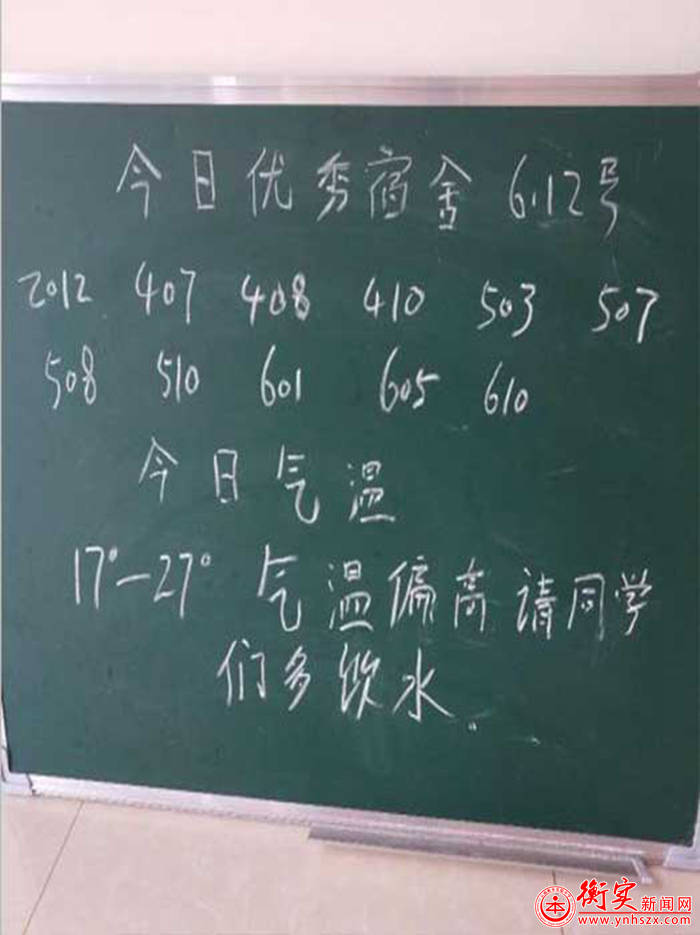 今日优秀宿舍 6.12号
2012 407 408 410 503 507
508 510 601 605 610
今日气温
17°-27° 气温偏高 请同学
们多饮水.
衡实新闻网
www.ynhszx.com